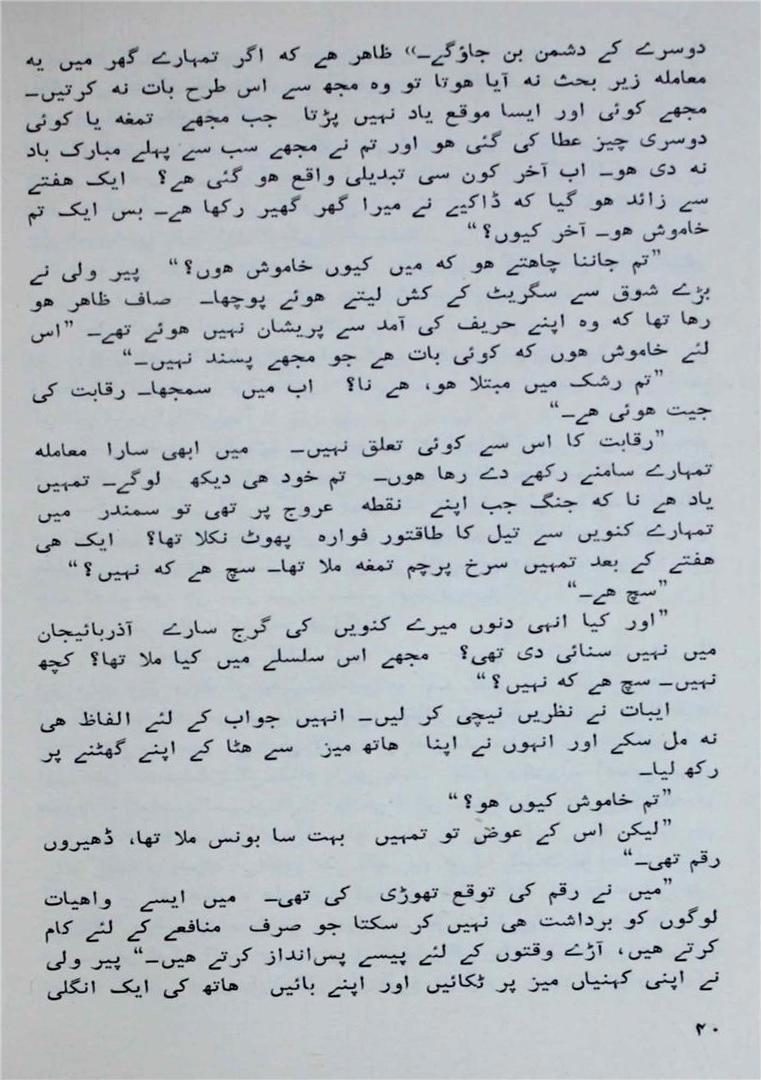 دوسرے کے دشمن بن جاؤگے۔,, ظاہر ھے کہ اگر تمہارے گھر میں یہ
معاملہ زیر بحث نہ آیا ھوتا تو وہ مجھ سے اس طرح بات نہ کرتیں۔
مجھے کوئی اور ایسا موقع یاد نہیں پڑتا جب مجھے تمغہ یا کوئی
دوسری چیز عطا کی گئی ھو اور تم نے مجھے سب سے پہلے مبارک باد
نہ دی ھو۔ اب آخر کون سی تبدیلی واقع ھو گئی ھے؟ ایک ھفتے
سے زائد ھو گیا کہ ڈاکیے نے میرا گھر گھیر رکھا ھے۔ بس ایک تم
خاموش ھو۔ آخر کیوں؟“
”تم جاننا چاھتے ھو کہ میں کیوں خاموش ھوں؟“ پیر ولی نے
بڑے شوق سے سگریٹ کے کش لیتے ھوئے پوچھا۔ صاف ظاھر ھو
رھا تھا کہ وہ اپنے حریف کی آمد سے پریشان نہیں ھوئے تھے۔ ”اس
لئے خاموش ھوں کہ کوئی بات ھے جو مجھے پسند نہیں۔“
”تم رشک میں مبتلا ھو، ھے نا؟ اب میں سمجھا۔ رقابت کی
جیت ھوئی ھے۔“
”رقابت کا اس سے کوئی تعلق نہیں۔ میں ابھی سارا معاملہ
تمہارے سامنے رکھے دے رھا ھوں۔ تم خود ھی دیکھ لوگے۔ تمہیں
یاد ھے نا کہ جنگ جب اپنے نقطہ عروج پر تھی تو سمندر میں
تمہارے کنویں سے تیل کا طاقتور فوارہ پھوٹ نکلا تھا؟ ایک ھی
ھفتے کے بعد تمہیں سرخ پرچم تمغہ ملا تھا۔ سچ ھے کہ نہیں؟“
”سچ ھے۔“
”اور کیا انہی دنوں میرے کنویں کی گرج سارے آذربائیجان
میں نہیں سنائی دی تھی؟ مجھے اس سلسلے میں کیا ملا تھا؟ کچھ
نہیں۔ سچ ھے کہ نہیں؟“
ایبات نے نظریں نیچی کر لیں۔ انہیں جواب کے لئے الفاظ ھی
نہ مل سکے اور انہوں نے اپنا ھاتھ میز سے ھٹا کے اپنے گھٹنے پر
رکھ لیا۔
”تم خاموش کیوں ھو؟“
”لیکن اس کے عوض تو تمہیں بہت سا بونس ملا تھا، ڈھیروں
رقم تھی۔“
”میں نے رقم کی توقع تھوڑی کی تھی۔ میں ایسے واھیات
لوگوں کو برداشت ھی نہیں کر سکتا جو صرف منافعے کے لئے کام
کرتے ھیں، آڑے وقتوں کے لئے پیسے پس‌انداز کرتے ھیں۔“ پیر ولی
نے اپنی کہنیاں میز پر ٹکائیں اور اپنے بائیں ھاتھ کی ایک انگلی
۴۰